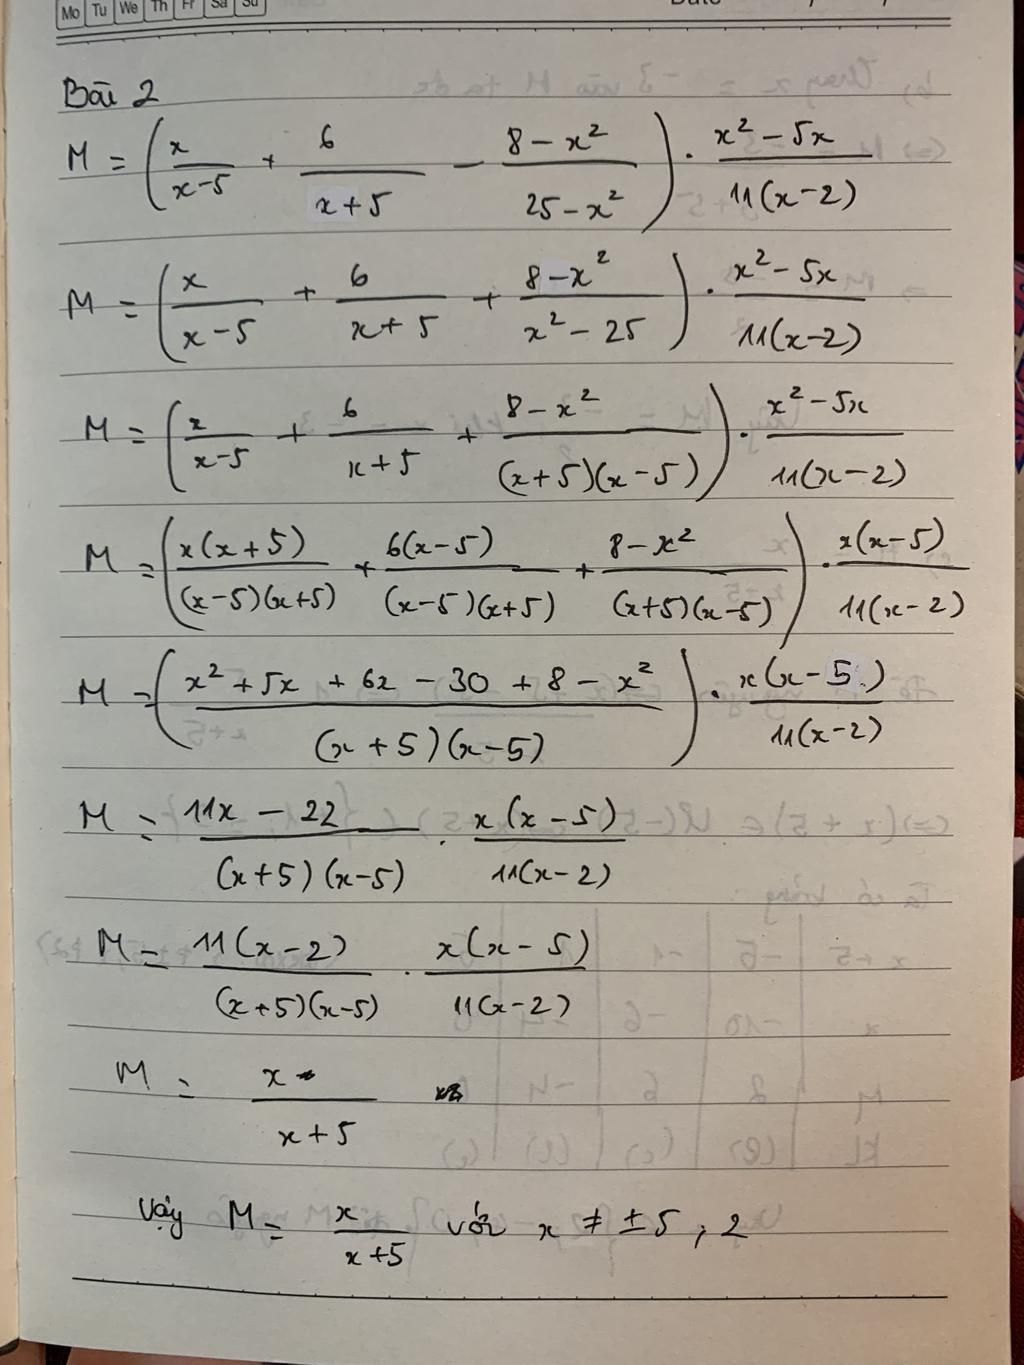 Mo Tu We Th Fr Sa Su
Date
Bài 2
M = (x/(x-5) + 6/(x+5) - (8-x²)/(25-x²)) . (x²-5x)/(11(x-2))
M = (x/(x-5) + 6/(x+5) + (8-x²)/(x²-25)) . (x²-5x)/(11(x-2))
M = (x/(x-5) + 6/(x+5) + (8-x²)/((x+5)(x-5))) . (x²-5x)/(11(x-2))
M = (x(x+5)/((x-5)(x+5)) + 6(x-5)/((x-5)(x+5)) + (8-x²)/((x+5)(x-5))) . x(x-5)/(11(x-2))
M = ((x²+5x+6x-30+8-x²)/((x+5)(x-5))) . x(x-5)/(11(x-2))
M = (11x-22)/((x+5)(x-5)) . x(x-5)/(11(x-2))
M = 11(x-2)/((x+5)(x-5)) . x(x-5)/(11(x-2))
M = x/(x+5)
Vậy M = x/(x+5) với x ≠ ±5, 2